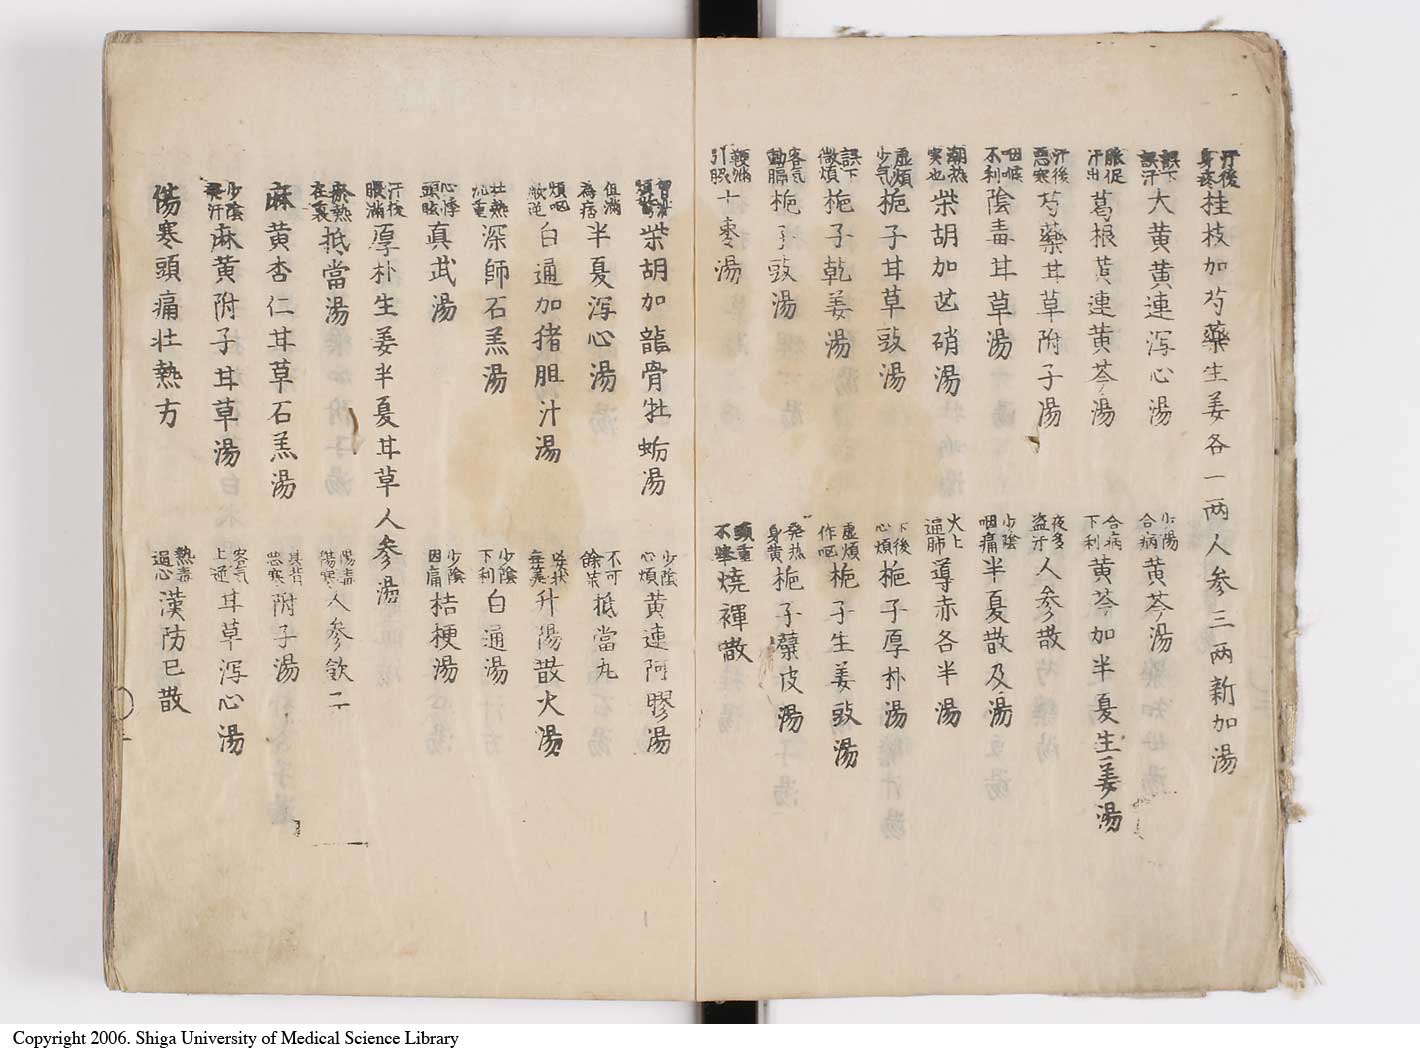 汗後身疼 桂枝加芍藥生姜各一両人参三両新加湯
誤下誤汗 大黄黄連泻心湯
少陽合病 黄芩湯
脈促汗出 葛根黄連黄芩湯
合病下利 黄芩加半夏生姜湯
汗後悪寒 芍藥甘草附子湯
夜多盗汗 人参散
咽喉不利 陰毒甘草湯
少陰咽痛 半夏散及湯
潮熱実也 柴胡加芒硝湯
火上逼肺 導赤各半湯
虚煩少気 梔子甘草豉湯
下後心煩 梔子厚朴湯
誤下微煩 梔子乾姜湯
虚煩作呕 梔子生姜豉湯
客気動膈 梔子豉湯
発热身黄 梔子蘗皮湯
鞕満引脇 十枣湯
頭重不舉 燒裈散
胸満煩驚 柴胡加龍骨牡蛎湯
少陰心煩 黄連阿膠湯
但満為痞 半夏泻心湯
不可餘薬 抵當丸
煩呕厥逆 白通加猪胆汁湯
升陽散火湯
壮熱沉重 深師石羔湯
少陰下利 白通湯
心悸頭眩 真武湯
少陰因痛 桔梗湯
汗後腹満 厚朴生姜半夏甘草人参湯
瘀熱在裏 抵當湯
陽毒傷寒 人参飲子
麻黄杏仁甘草石羔湯
其背悪寒 附子湯
少陰無汗 麻黄附子甘草湯
客気上逆 甘草泻心湯
傷寒頭痛壮熱方
熱毒過心 漢防已散